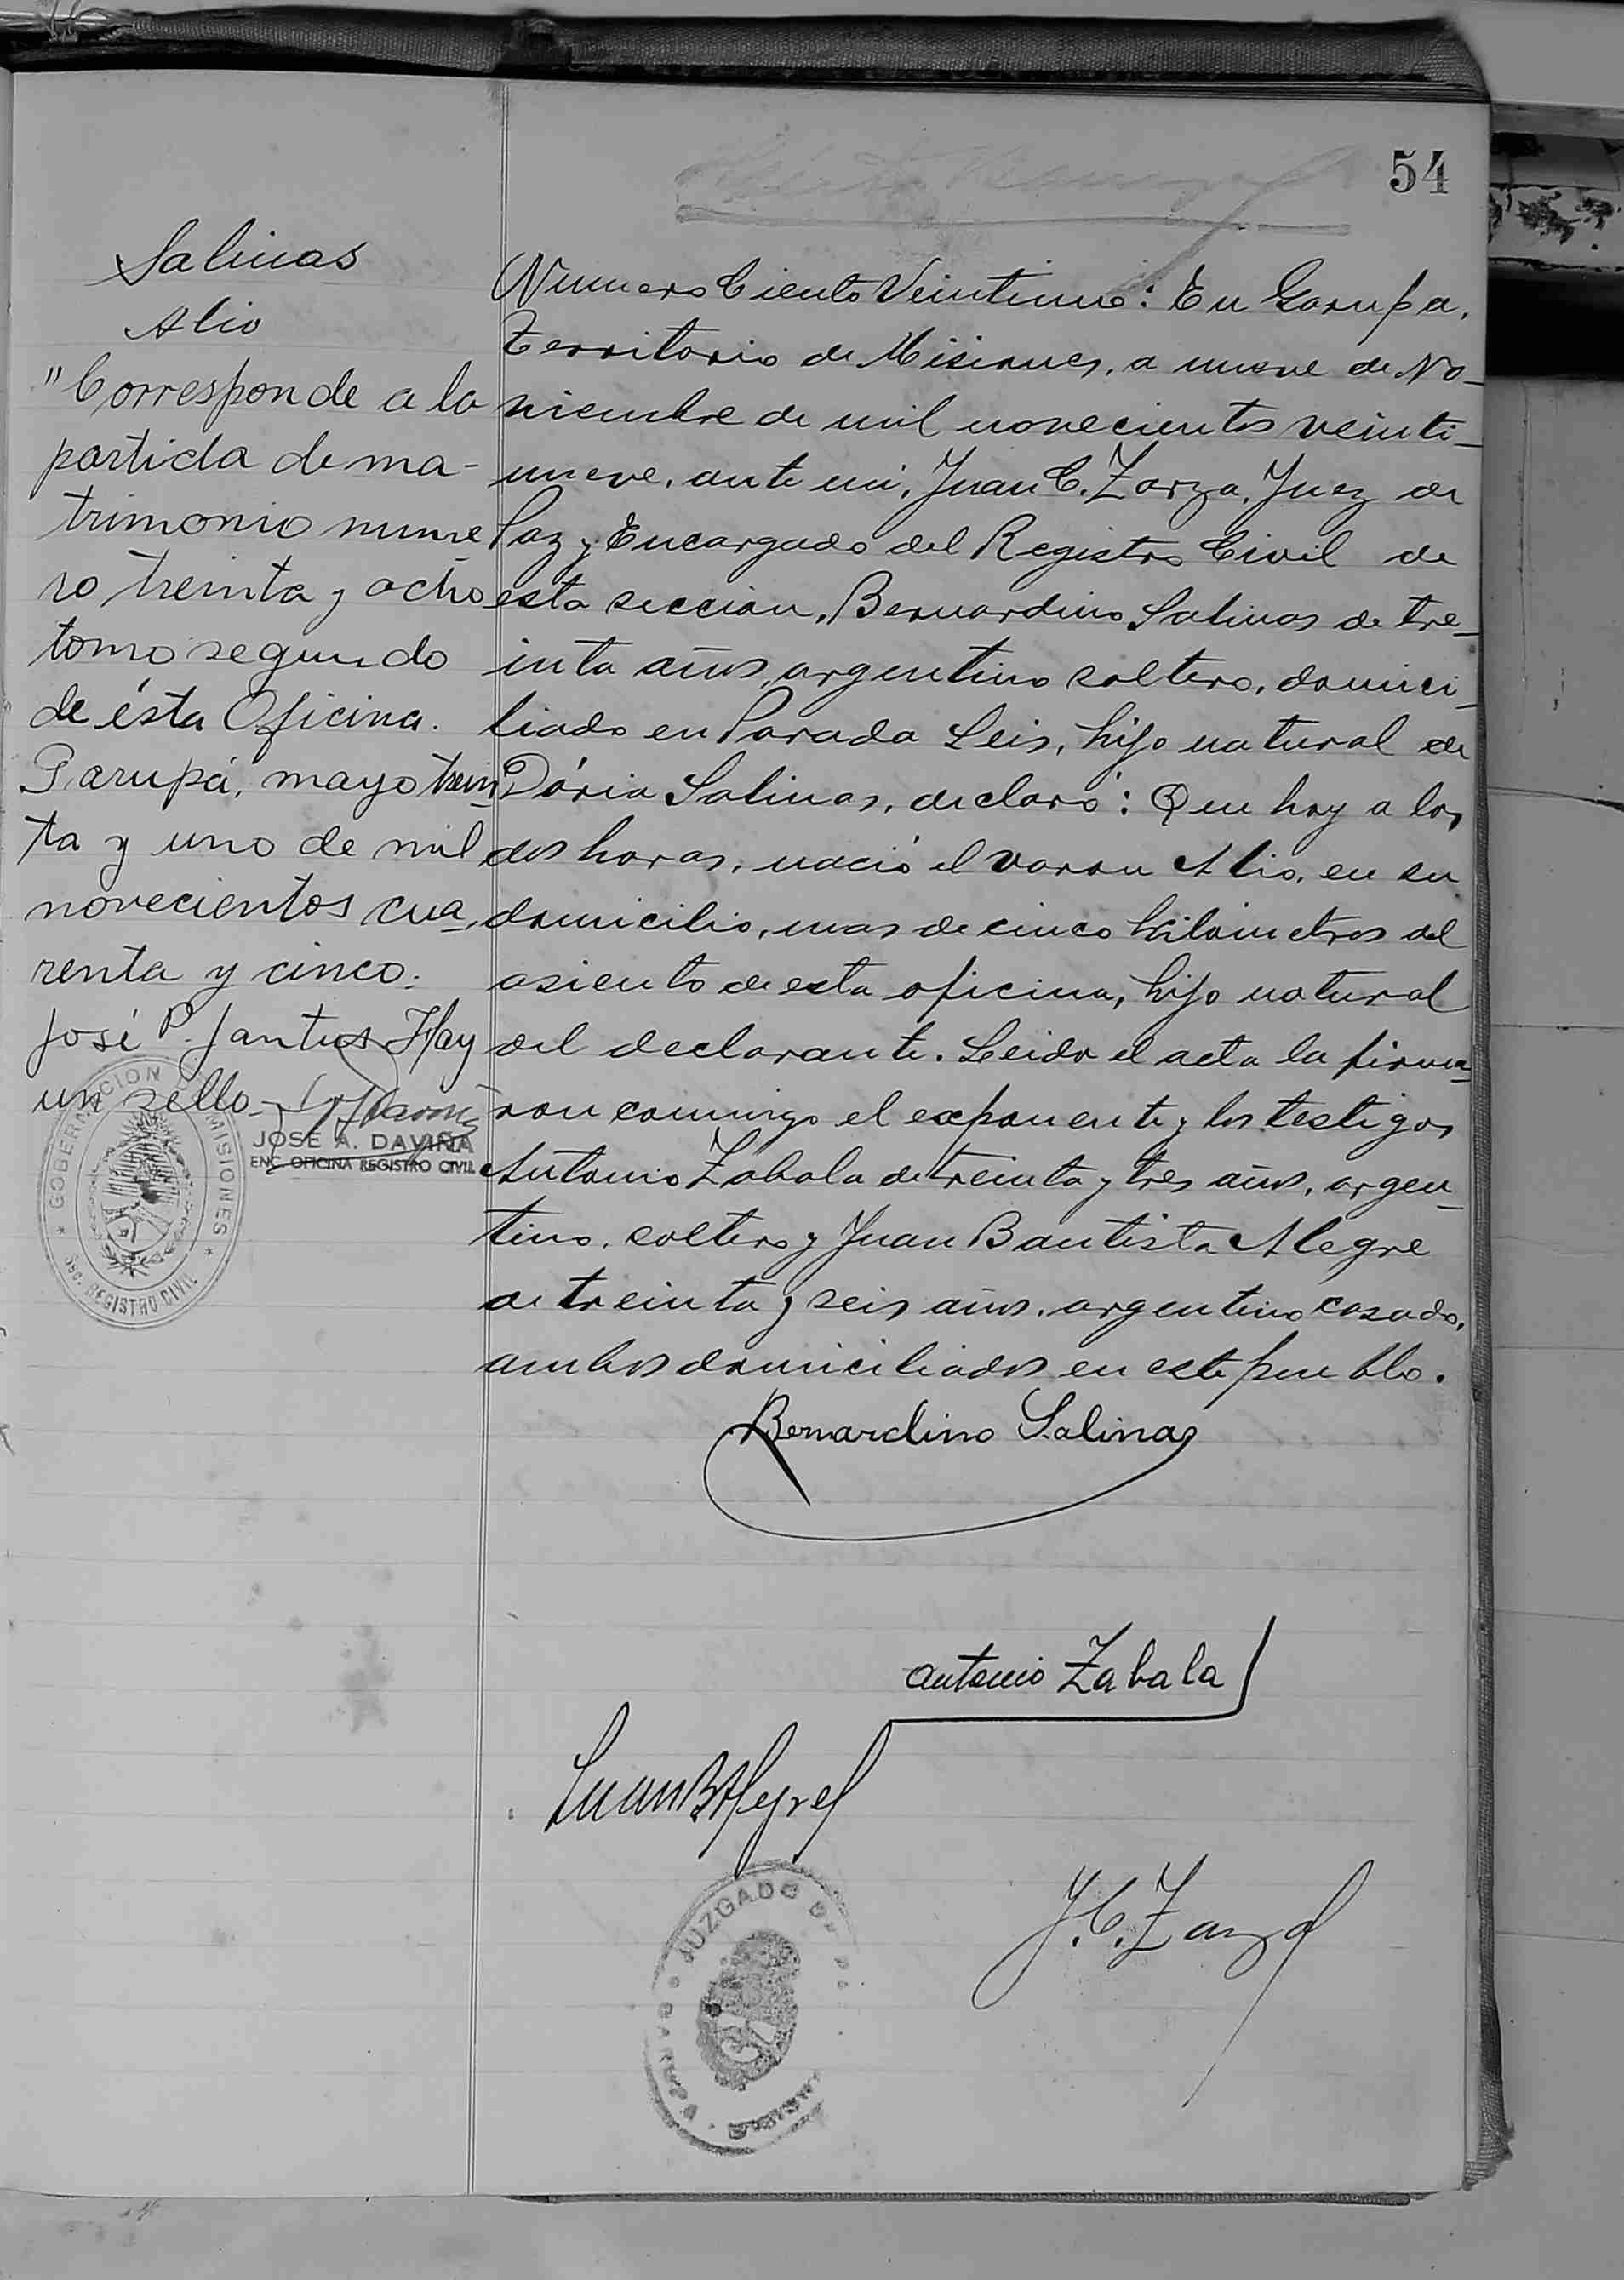 54
Salinas
Alio
"Corresponde a la
partida de ma-
trimonio nume-
ro treinta y ocho
tomo segundo
de ésta Oficina.
Garupá, mayo trein-
ta y uno de mil
novecientos cua-
renta y cinco.
José P. Santus Hay
un sello.
JOSE A. DAVIÑA
ENC. OFICINA REGISTRO CIVIL
GOBERNACION DE MISIONES
Sec. REGISTRO CIVIL
Numero Ciento Veintiuno: En Garupa,
Territorio de Misiones, a nueve de No-
viembre de mil novecientos veinti-
nueve, ante mi, Juan C. Zarza, Juez de
Paz y Encargado del Registro Civil de
esta seccion, Bernardino Salinas de tre-
inta años, argentino soltero, domici-
liado en Parada Leis, hijo natural de
Dória Salinas, declaró: Que hoy a las
dos horas, nació el varon Alio, en su
domicilio, mas de cinco kilometros del
asiento de esta oficina, hijo natural
del declarante. Leida el acta la firma-
ron conmigo el exponente y los testigos
Antonio Zabala de treinta y tres años, argen-
tino, soltero y Juan Bautista Alegre
de treinta y seis años, argentino casado,
ambos domiciliados en este pueblo.
Bernardino Salinas
Antonio Zabala
Juan B Alegre
J. C. Zarza
JUZGADO DE